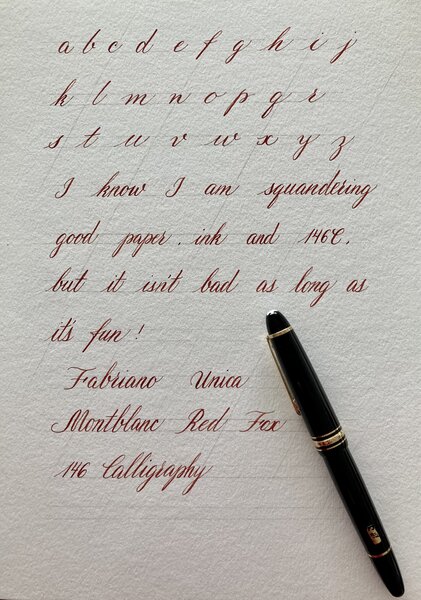 a b c d e f g h i j
k l m n o p q r
s t u v w x y z
I know I am squandering
good paper, ink and 146C,
but it isn't bad as long as
it's fun!
Fabriano Unica
Montblanc Red Fox
146 Calligraphy